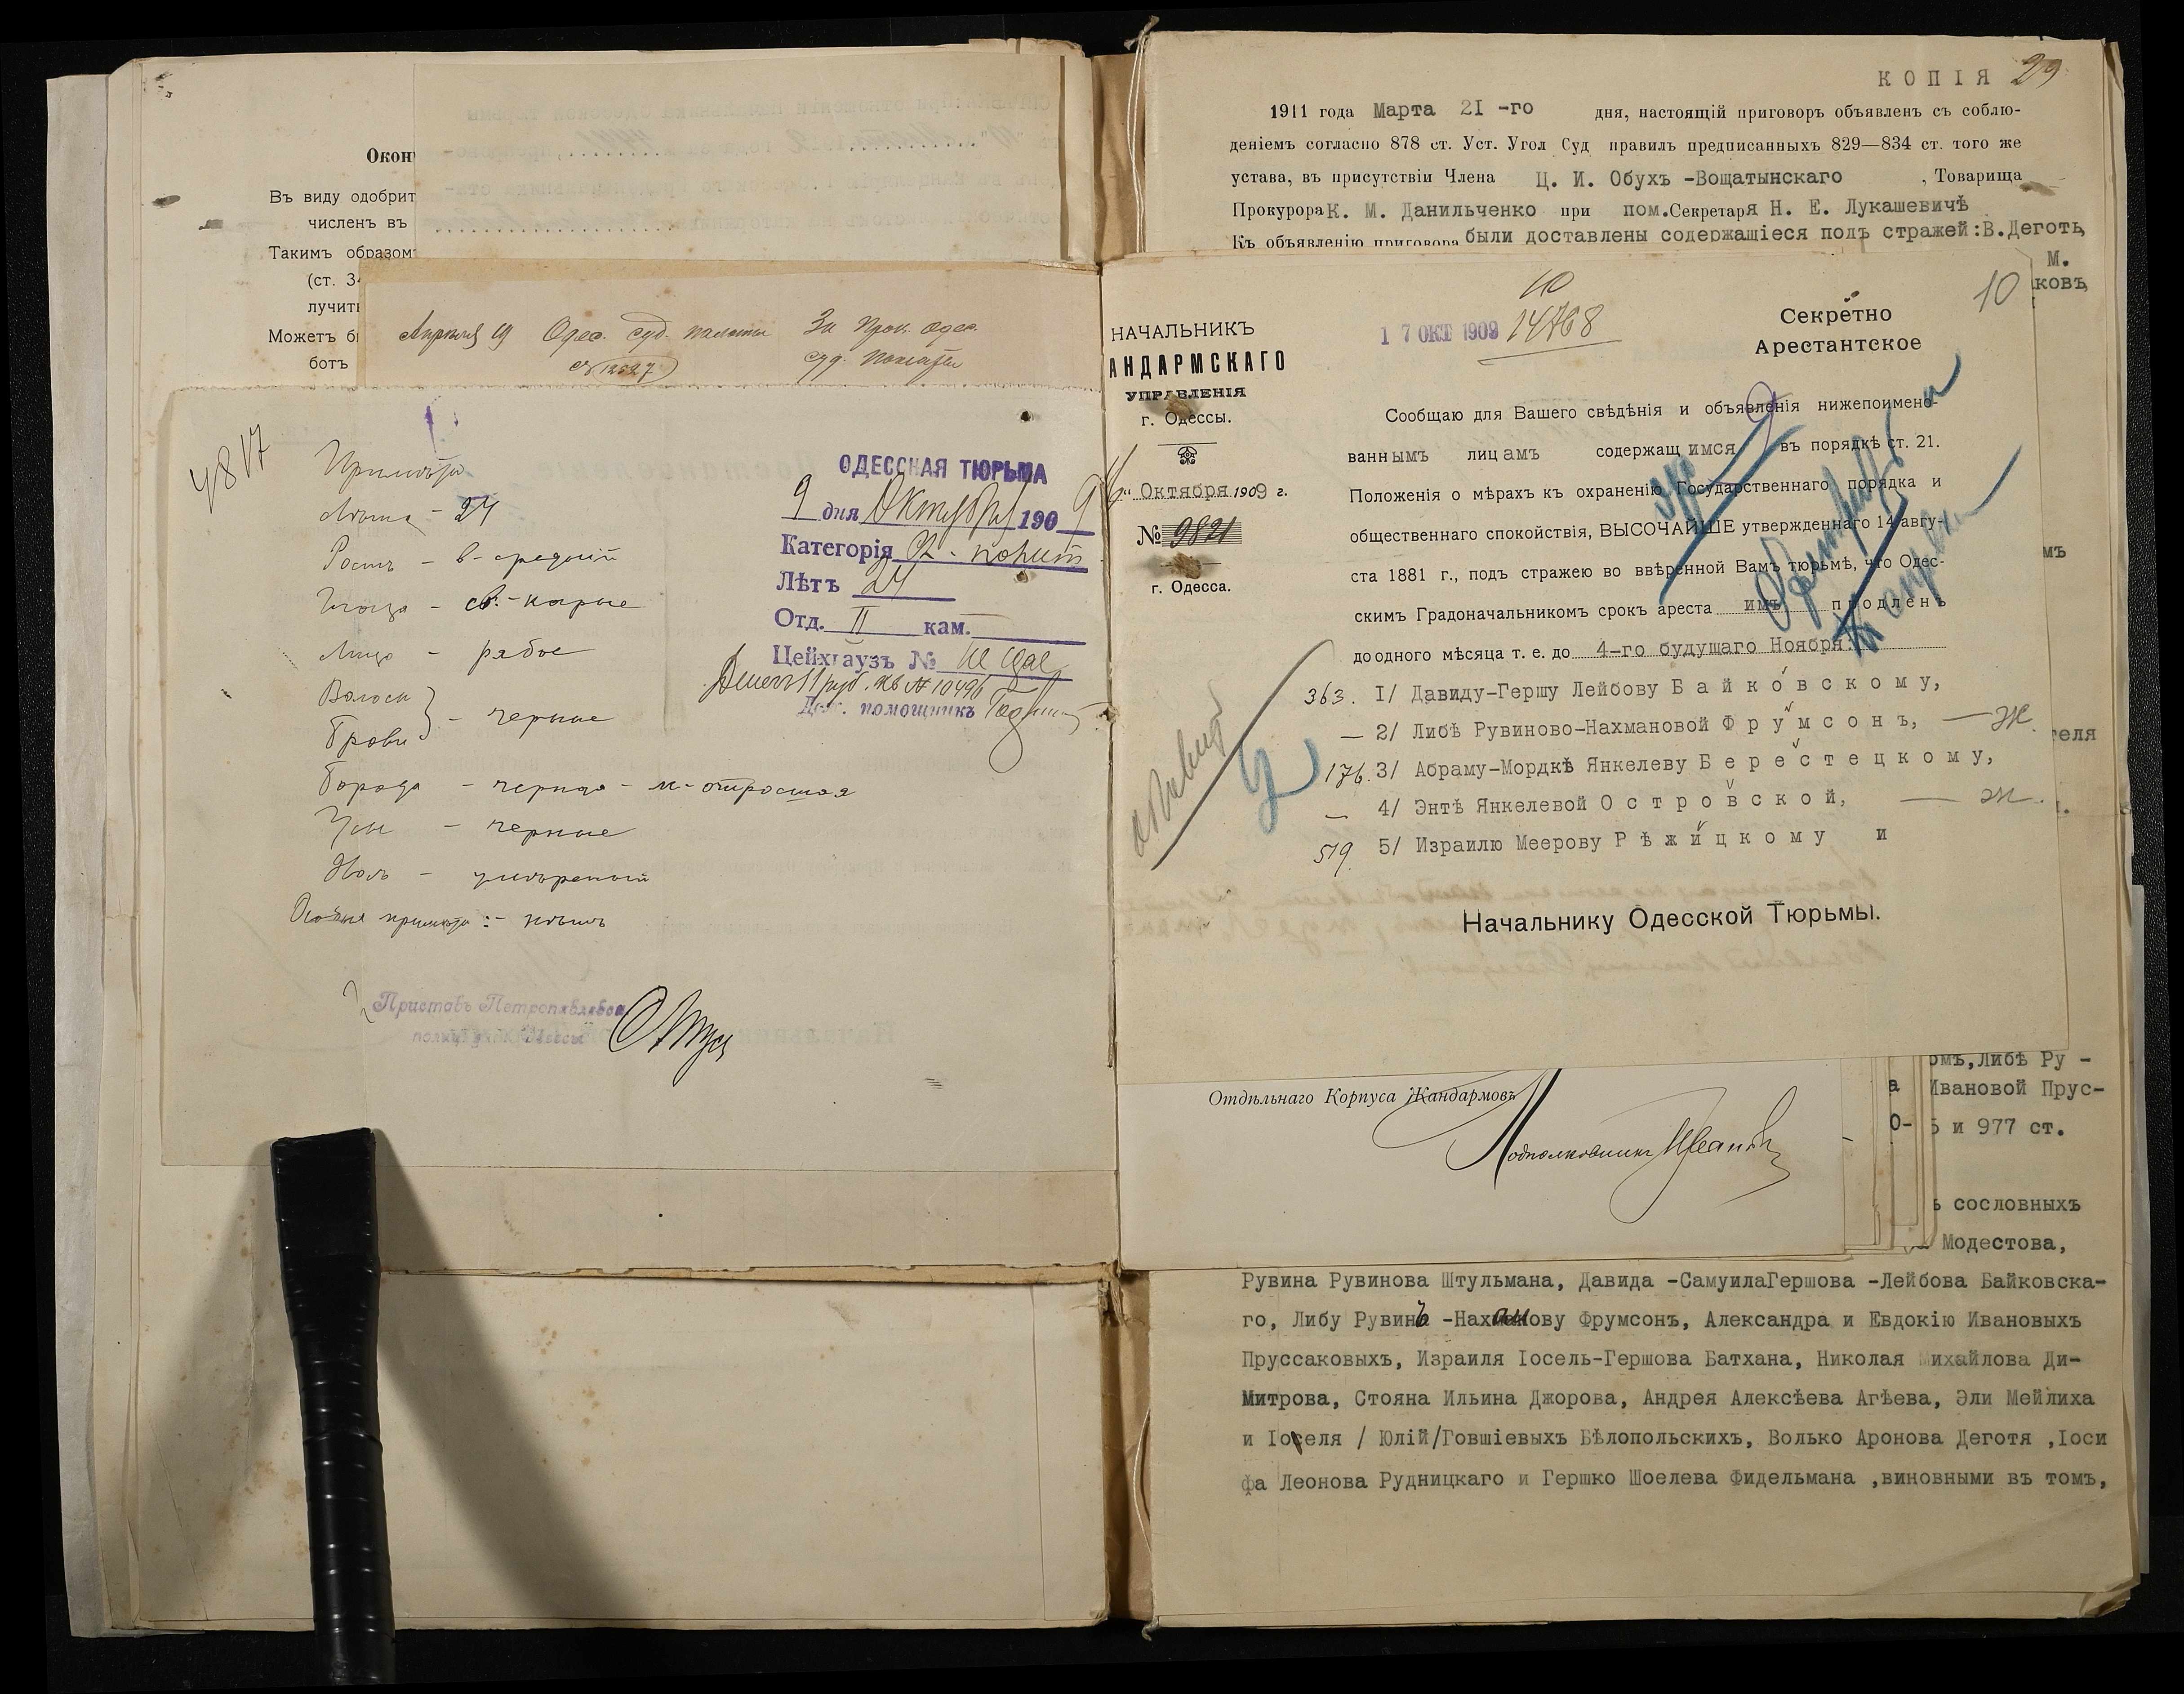 Окон
Въ виду одобрит
численъ въ
Такимъ образом
(ст. 34
лучит
Может б
ботъ
Апрѣля 19 Одес. суд. палаты За Прок. Одес.
№ 12327 суд. палаты
4817
Примѣты
Лѣта - 24
Ростъ - в-средній
Глаза - св.-каріе
Лицо - рябое
Волосы
Брови } - черные
Борода - черная - м-отросшая
Усы - черные
Носъ - умѣренный
Особыя примѣты: - нѣтъ
Приставъ Петропавловск
полиц. уч. г. Одессы
ОДЕССКАЯ ТЮРЬМА
9 дня Октября 1909
Категорія полит
Лѣтъ 24
Отд. II кам.
Цейхгаузъ № не сдал
Денегъ 11 руб. кв № 10496
Деж. помощникъ
КОПІЯ 29
1911 года Марта 21 -го дня, настоящій приговоръ объявленъ съ соблю-
деніемъ согласно 878 ст. Уст. Угол Суд правилъ предписанныхъ 829—834 ст. того же
устава, въ присутствіи Члена Ц. И. Обухъ -Вощатынскаго , Товарища
Прокурора К. М. Данильченко при пом.Секретаря Н. Е. Лукашевичѣ
Къ объявленію приговора были доставлены содержащіеся подъ стражей:В.Деготь,
М.
ковъ,
10
14768
17 ОКТ 1909
10
Секретно
Арестантское
НАЧАЛЬНИКЪ
АНДАРМСКАГО
УПРАВЛЕНІЯ
г. Одессы.
16" Октября 1909 г.
№ 9821
г. Одесса.
Сообщаю для Вашего свѣдѣнія и объявленія нижепоимено-
ваннымъ лицамъ содержащимся въ порядкѣ ст. 21.
Положенія о мѣрахъ къ охраненію Государственнаго порядка и
общественнаго спокойствія, ВЫСОЧАЙШЕ утвержденнаго 14 авгу-
ста 1881 г., подъ стражею во ввѣренной Вамъ тюрьмѣ, что Одес-
скимъ Градоначальникомъ срокъ ареста имъ продленъ
до одного мѣсяца т. е. до 4-го будущаго Ноября:
363. 1/ Давиду-Гершу Лейбову Байковскому,
— 2/ Либѣ Рувиново-Нахмановой Фрумсонъ, — Ж.
176. 3/ Абраму-Мордкѣ Янкелеву Берестецкому,
— 4/ Энтѣ Янкелевой Островской, — Ж.
519. 5/ Израилю Меерову Рѣжицкому и
Начальнику Одесской Тюрьмы.
мъ
теля
Отдѣльнаго Корпуса Жандармовъ
Подполковникъ Иванов
омъ,Либѣ Ру -
а Ивановой Прус-
О- 5 и 977 ст.
ъ сословныхъ
Модестова,
Рувина Рувинова Штульмана, Давида -СамуилаГершова -Лейбова Байковска-
го, Либу Рувинъ -Нахманову Фрумсонъ, Александра и Евдокію Ивановыхъ
Пруссаковыхъ, Израиля Іосель-Гершова Батхана, Николая Михайлова Ди-
Митрова, Стояна Ильина Джорова, Андрея Алексѣева Агѣева, Эли Мейлиха
и Іоселя / Юлій/Говшіевыхъ Бѣлопольскихъ, Волько Аронова Деготя ,Іоси
фа Леонова Рудницкаго и Гершко Шоелева Фидельмана ,виновными въ томъ,